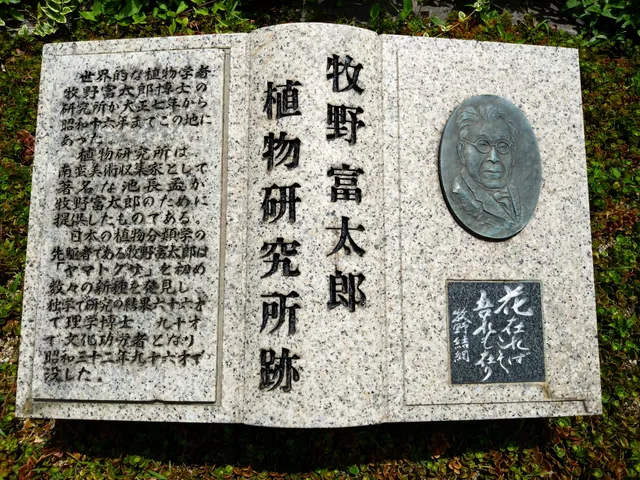 牧野富太郎
植物研究所跡
世界的な植物学者
牧野富太郎博士の
研究所が大正七年から
昭和十六年までこの地に
あった。
植物研究所は、
南蛮美術収集家として
著名な池長孟が
牧野富太郎のために
提供したものである。
日本の植物分類学の
先駆者である牧野富太郎は
「ヤマトグサ」を初め
数々の新種を発見し
独学で研究の結果六十六才
で理学博士、九十才
で文化功労者となり
昭和三十二年九十六才で
没した。
花在れば
こそ
吾れも在り
牧野結網